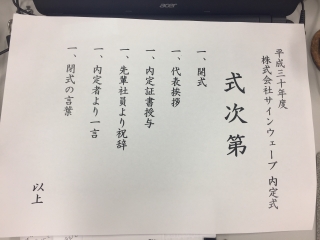 平成三十年度
株式会社サインウェーブ 内定式
式次第
一、開式
一、代表挨拶
一、内定証書授与
一、先輩社員より祝辞
一、内定者より一言
一、閉式の言葉
以上
acer